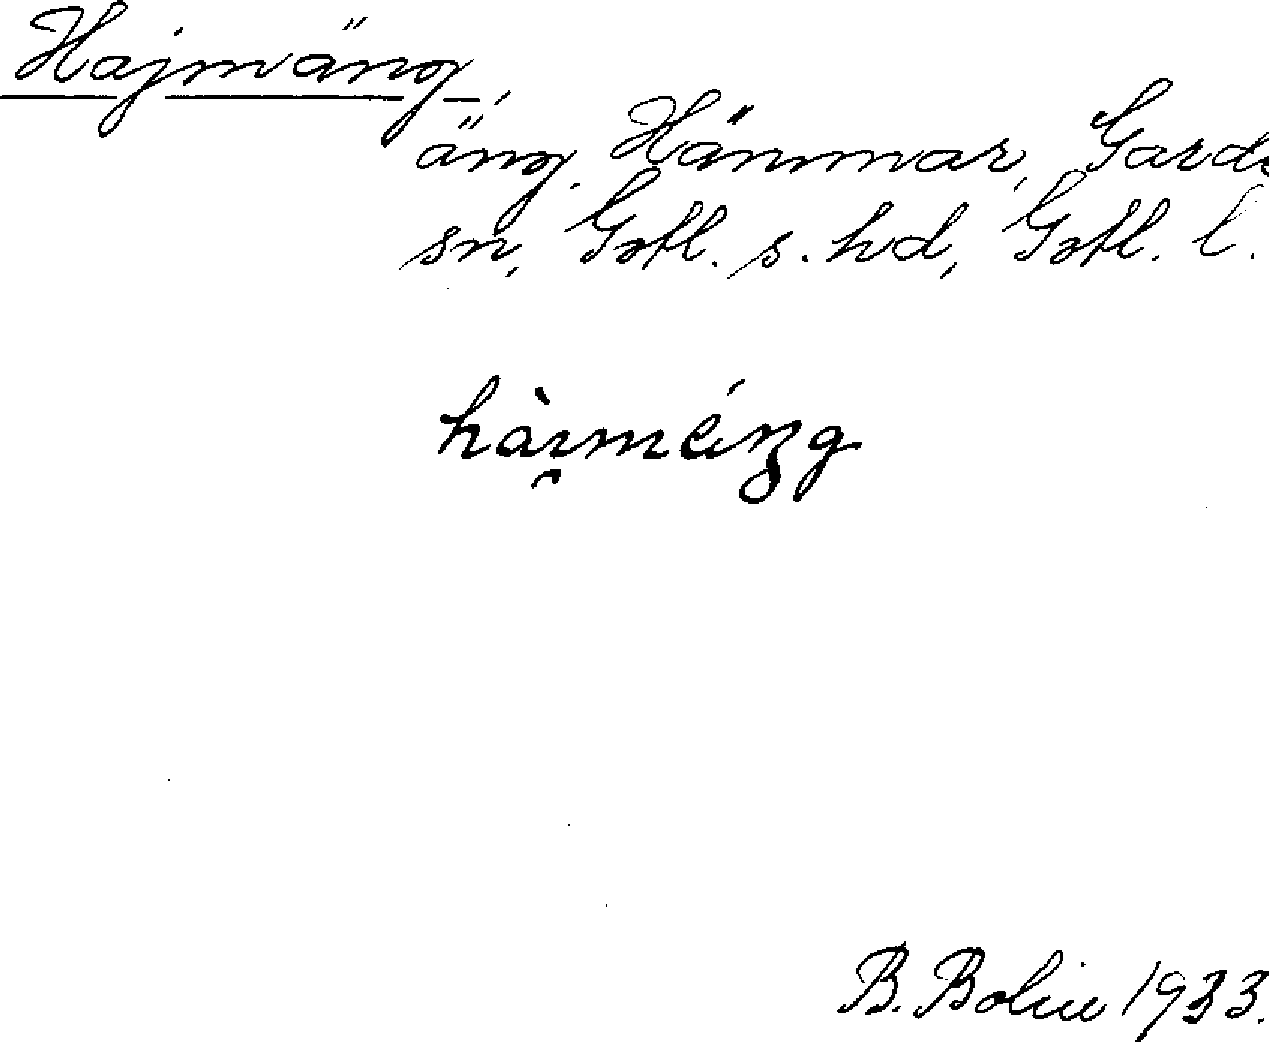 Hajmäng,
äng, Hänmar, Garde
sn, Gotl. s. hd, Gotl. l.
hàɪ̯méŋg
B. Bolin 1933.